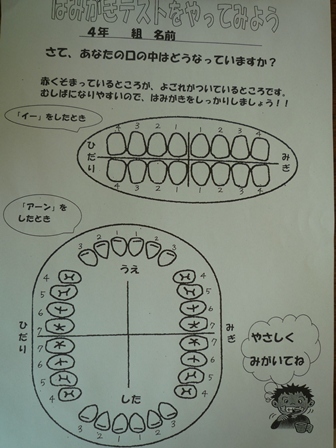 はみがきテストをやってみよう
4年　組　名前
さて、あなたの口の中はどうなっていますか？
赤くそまっているところが、よごれがついているところです。
むしばになりやすいので、はみがきをしっかりしましょう！！
「イー」をしたとき
4 3 2 1 1 2 3 4
ひだり
みぎ
4 3 2 1 1 2 3 4
「アーン」を
したとき
3 2 1 1 2 3
うえ
4 4
5 5
6 6
7 7
ひだり
みぎ
7 7
6 6
5 5
4 4
した
3 2 1 1 2 3
やさしく
みがいてね